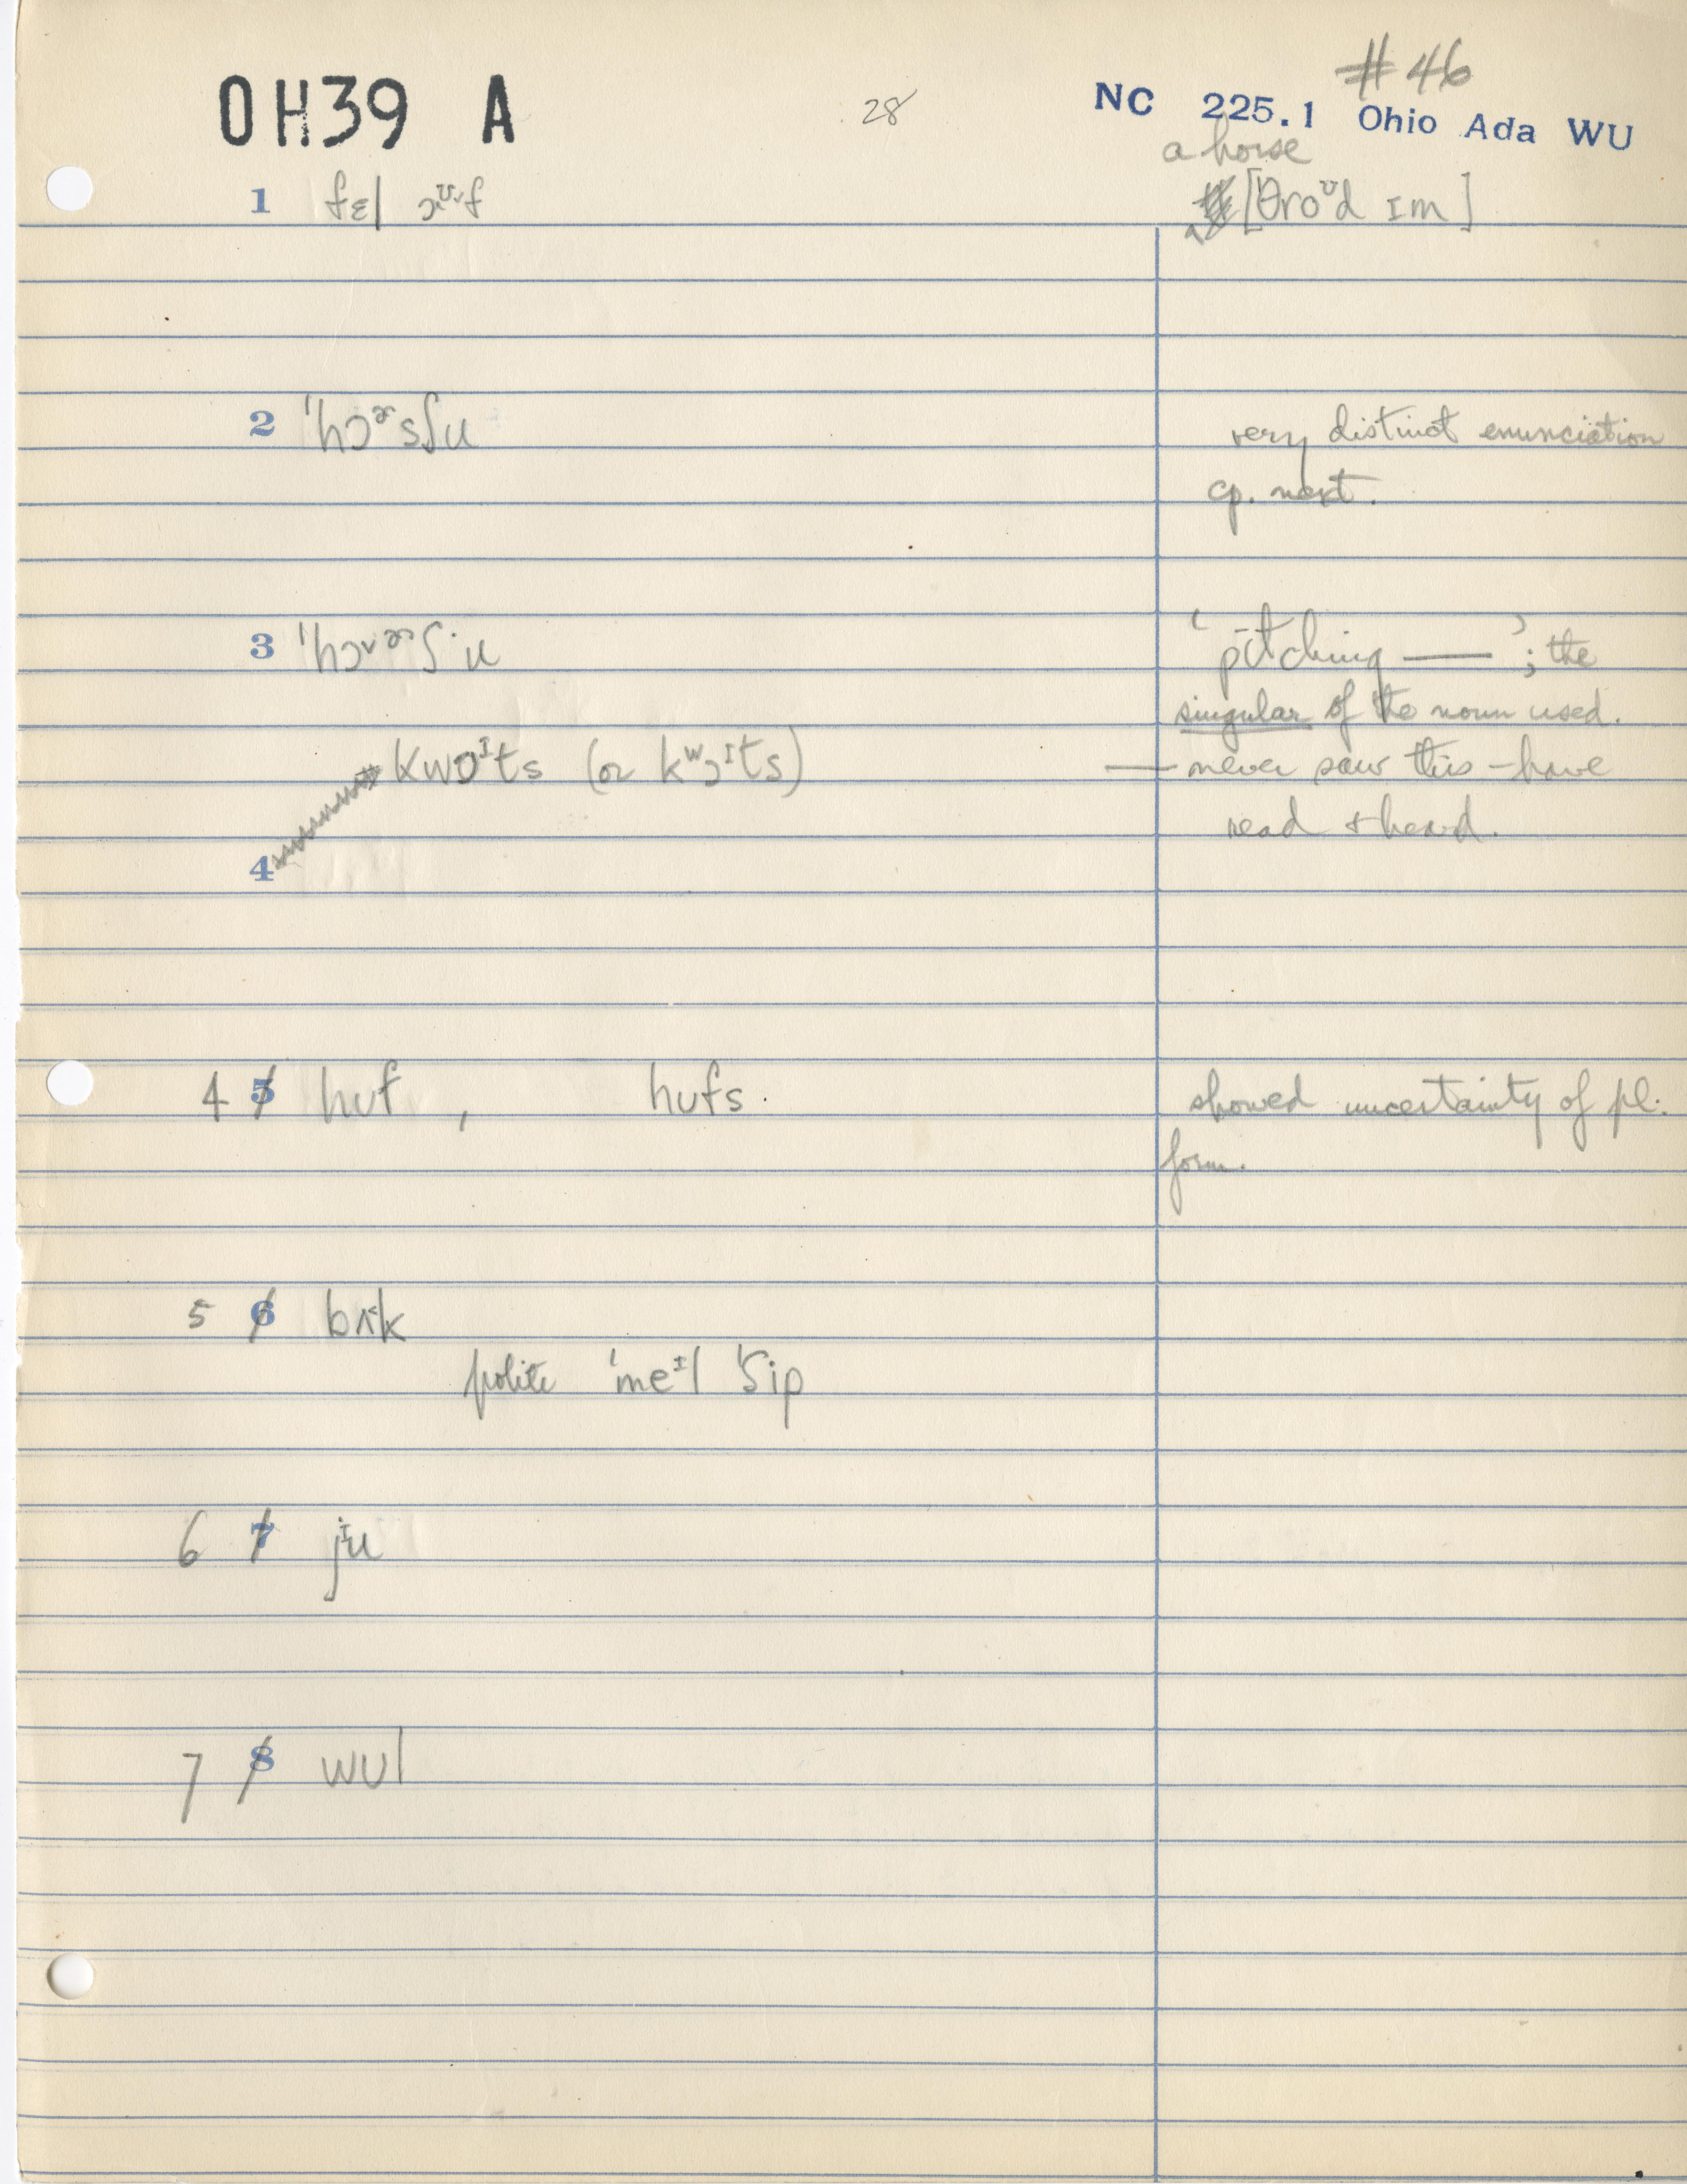 OH39 A
28
#46
NC 225.1 Ohio Ada WU
a horse
1 fɛl ɔᶷf
[θroᶷd ɪm]
2 ˈhɔɚsʃu
very distinct enunciation
cp. next.
3 ˈhɔ˅ɚʃ·u
'pitching —' ; the
singular of the noun used.
kwɔᴵts (or kʷɔᴵts)
— never saw this – have
read & heard.
4
4 5 hʊf , hʊfs.
showed uncertainty of pl.
form.
5 6 bʌk
polite ˈmeᴵl ˈʃip
6 7 jᴵu
7 8 wʊl